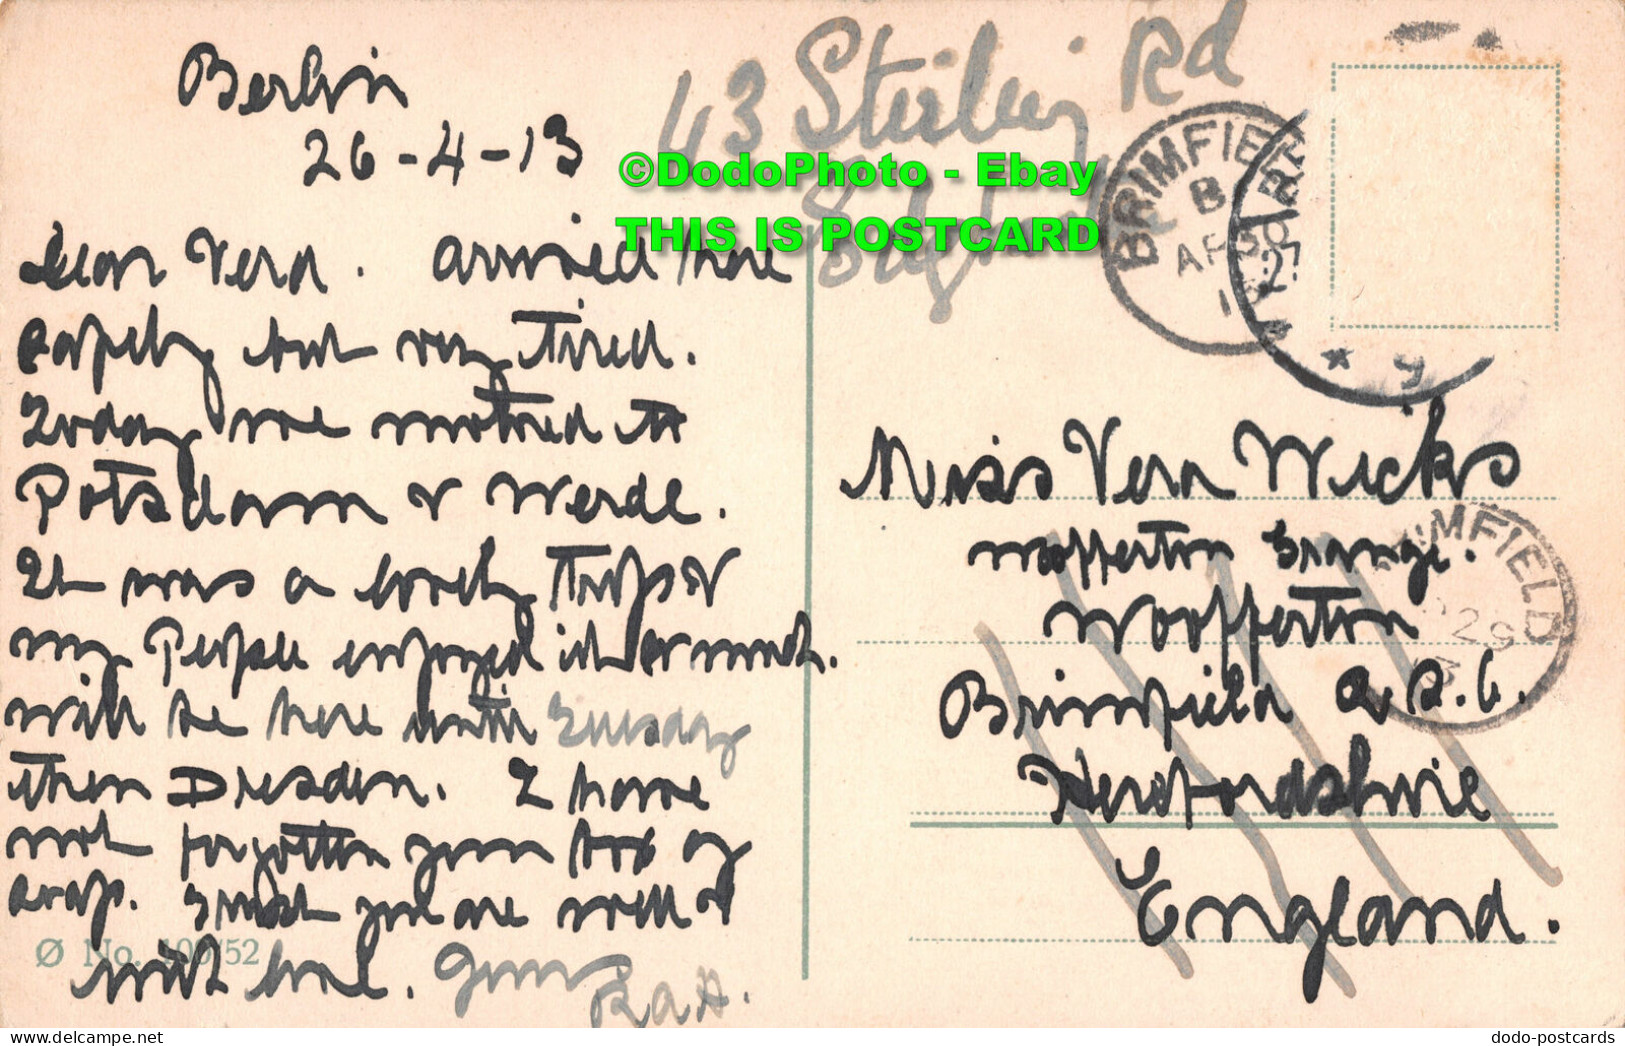 Berlin
26-4-13
Dear Vera. Arrived here
safely but very tired.
Today we motored to
Potsdam & Werde.
It was a lovely trip &
my People enjoyed it so much.
will be here until Tuesday
then Dresden. I have
not forgotten your box of
soap. Trust you are well &
with love. Yours
R.A.H.
Ø No. 52
43 Stirling Rd
©DodoPhoto - Ebay
THIS IS POSTCARD
BRIMFIELD
B
AP 30
* g
Miss Vera Wicks
Woofferton Grange.
Woofferton
Brimfield R.S.O.
Herefordshire
England.
IMFIELD
29
dodo-postcards